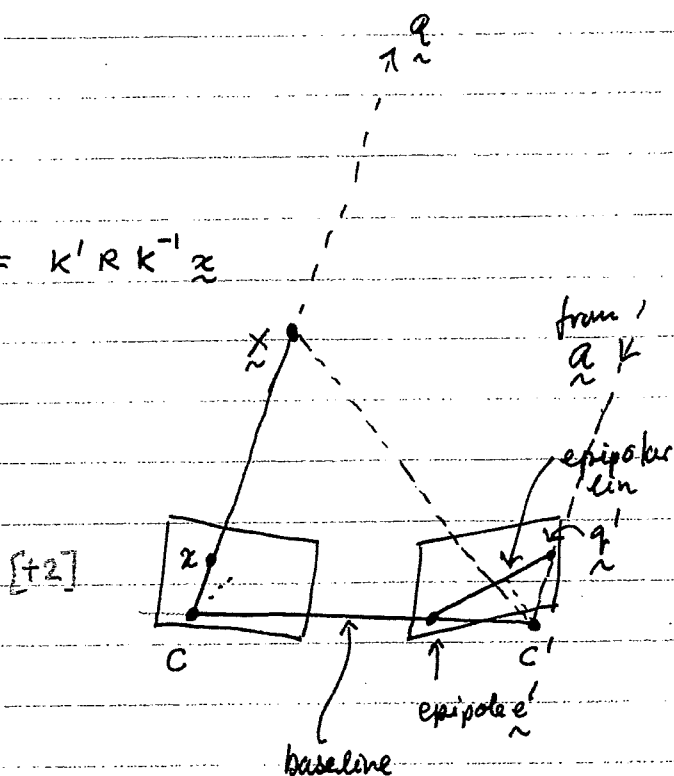 Q
= K' R K⁻¹ x
X
from
Q
epipolar
lin
x
q'
[+2]
C
C'
epipole e'
baseline